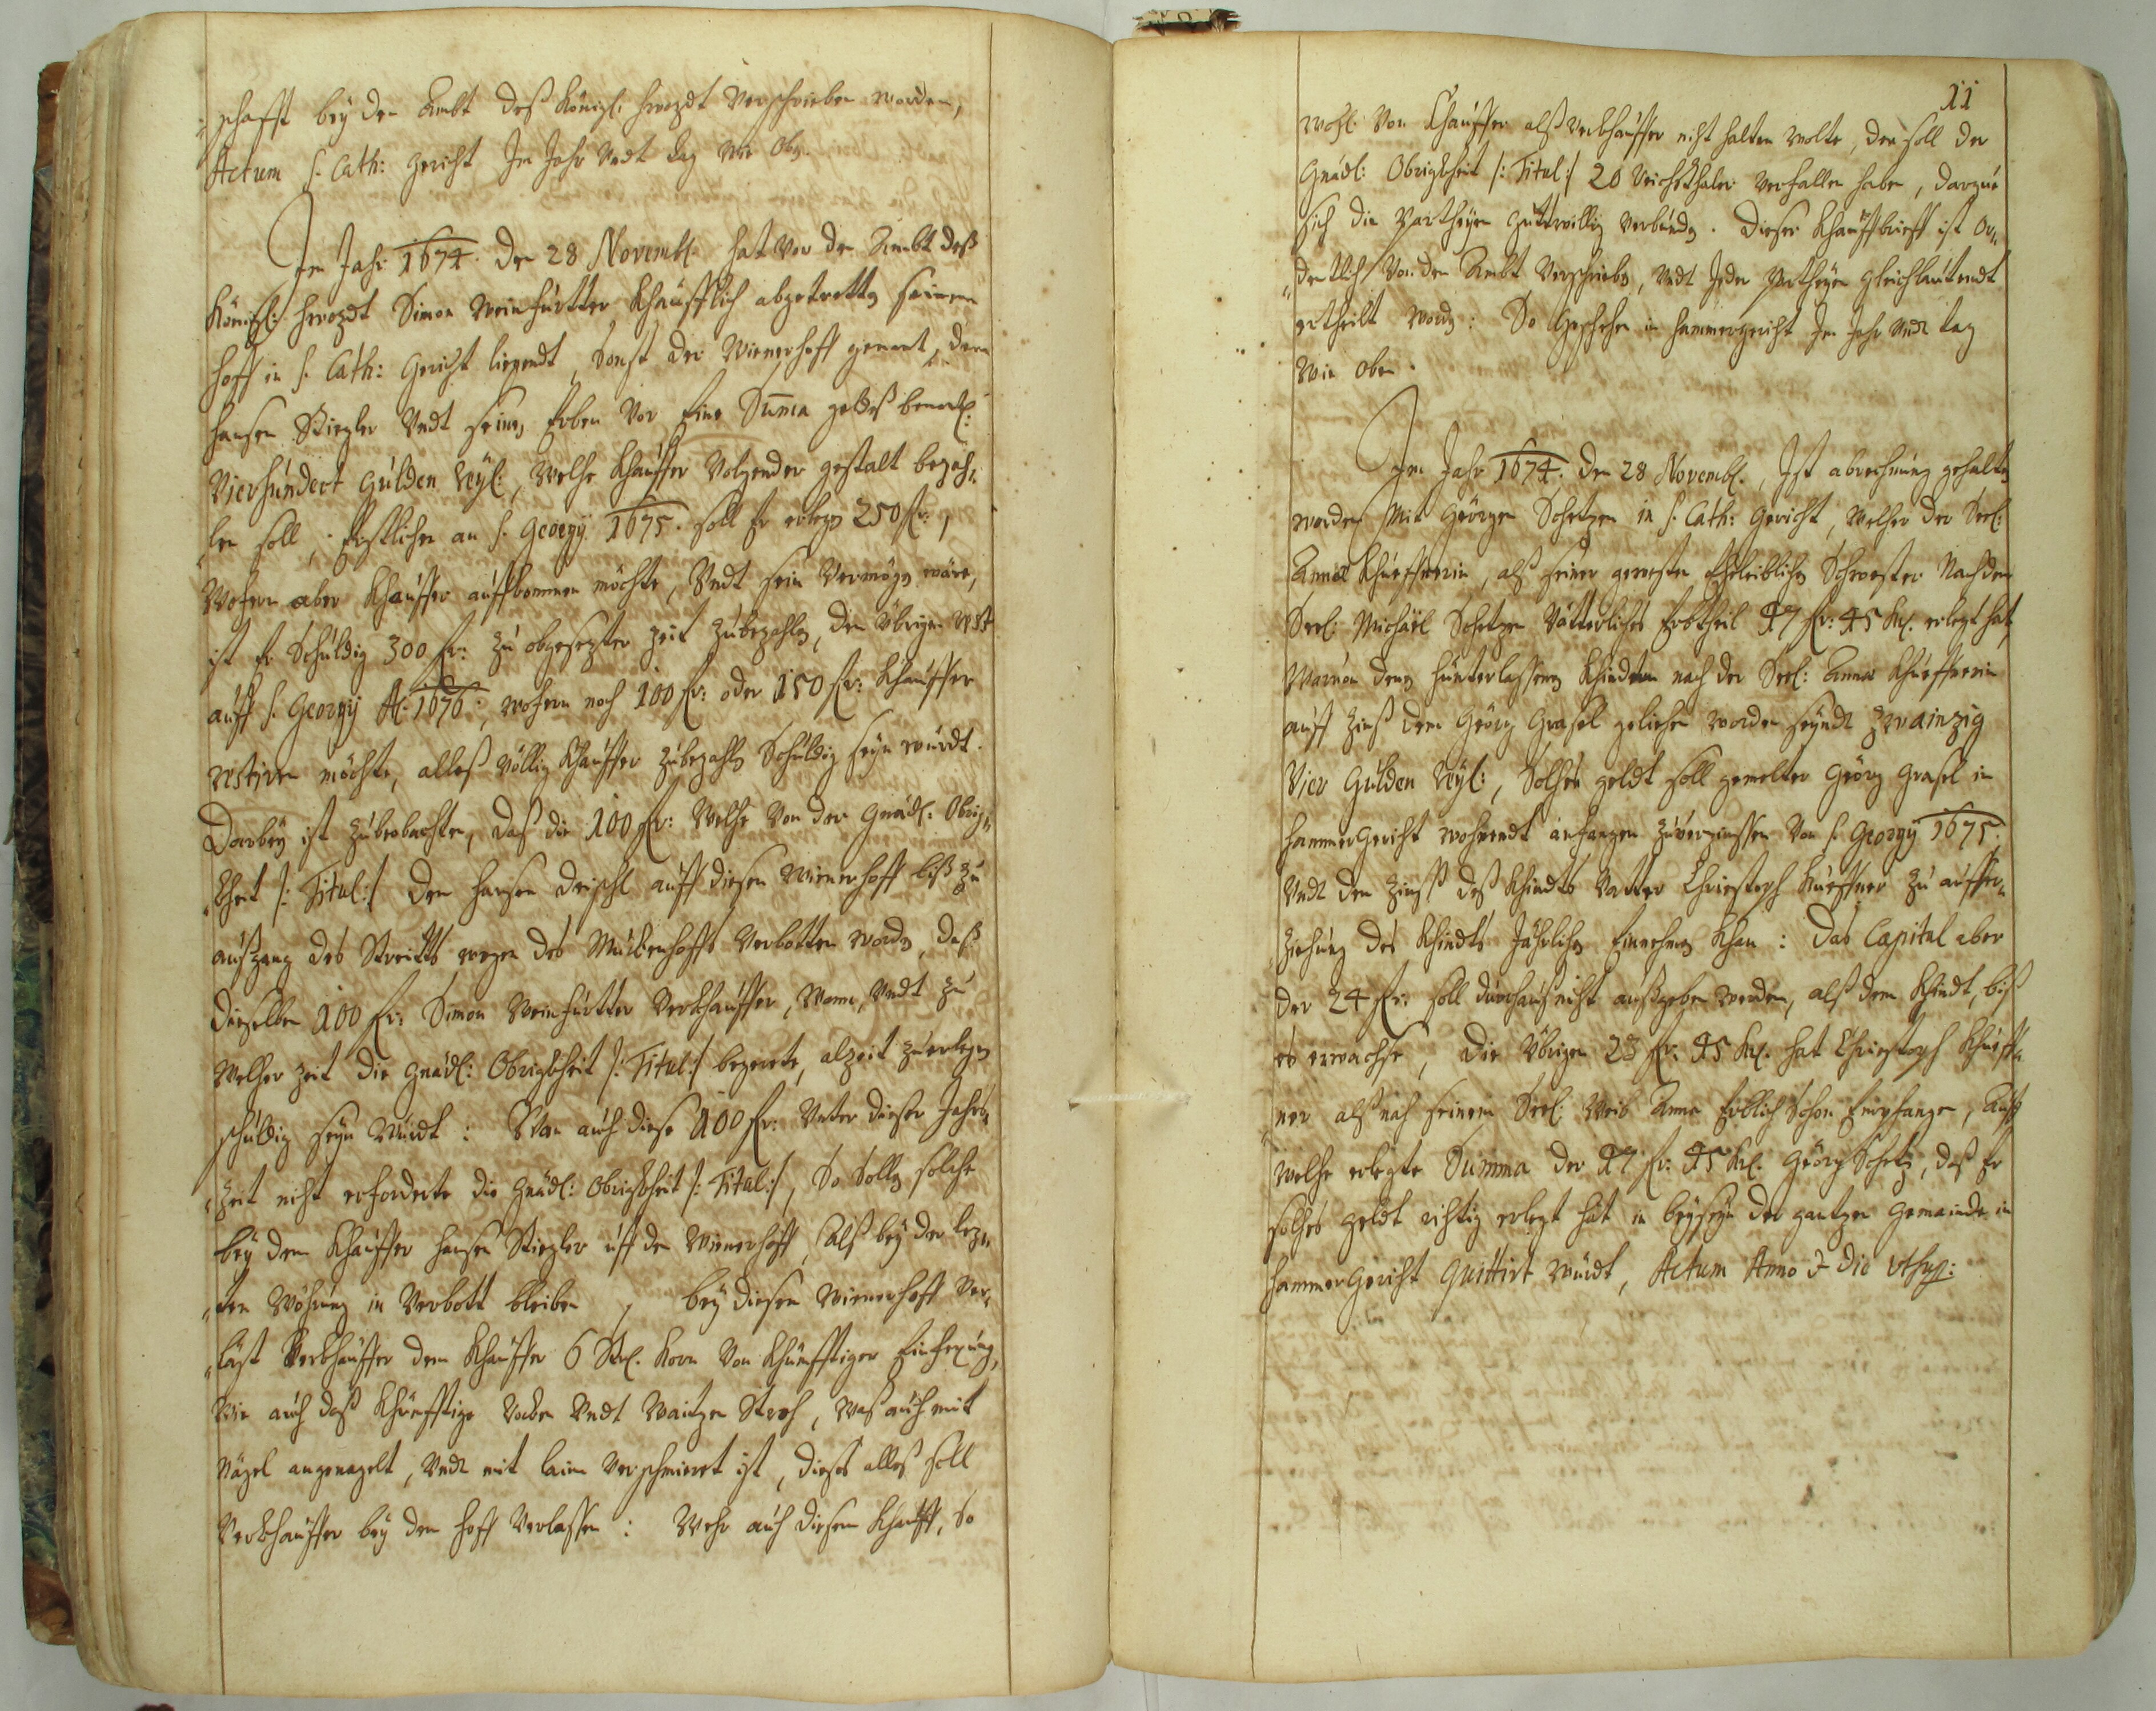 schafft bey den Ambt deß Königl: hwozdt Verschrieben worden,
Actum S. Cath: Gericht Im Jahr Vndt tag wie Obn.
Im Jahr 1674. den 28 Novembl. hat Vor den Ambt deß
Königl: hwozdt Simon Weinfurtter Khaufflich abgetretten seinen
hoff in S. Cath: Gericht liegendt, Sonst der Wienerhoff genant, dem
hansen Stiegler Vndt seinen Erben Vor Eine Suma geldeß benantl:
Vierhundert Gulden Rhl:, Welche Khauffer Volgender gestalt bezah,,
,,len soll, Erstlichen an S. Georgy 1675. soll Er erlegen 250 fl:,
Wofern aber Khauffer auffkommen möchte, Vndt sein Vermögen wäre,
ist Er Schuldig 300 fl: zu obgesezter Zeit zubezahlen, den Übrigen rest
auff S. Georgy A: 1676:, wofern noch 100 fl: oder 150 fl: Khauffer
restiren möchte, alleß völlig Khauffer zubezahlen Schuldig seyn wurdt.
Darbey ist zubeobachten, daß die 100 fl: Welche Von der Gnädl: Obrig,,
,,kheit /: Titul:/ dem hansen Drischl auff diesen Wienerhoff biß zu
außgang des Streitts wegen des Verbotten worden, daß
dieselben 100 fl: Simon Weinfurtter Verkhauffer, Wann, Vndt zu
Welcher Zeit die Gnädl: Obrigkheit /: Titul:/ begerete, alzeit zuerlegen
schuldig seyn wurdt: Wan auch diese 100 fl: Vnter dieser Jahrs,,
,,Zeit nicht erforderte die Gnädl: Obrigkheit /: Titul:/, So Sollen solche
bey dem Khauffer hansen Stiegler uff den Wienerhoff, Alß bey der lez,,
,,ten Wöhrung in Verbott bleiben, bey diesen Wienerhoff Ver,,
,,läst Verkhauffer dem Khauffer 6 Str. Korn Von Khünfftiger Einfexung,
Wie auch daß Khünfftige Rocken Vndt Waitzen Stroh, Waß auch mit
Nägel angenagelt, Vndt mit laim Verschmieret ist, dieses alles soll
Verkhauffer bey den hoff Verlassen: Wehr auch diesen Khauff, so
11
wohl Von Khauffer alß Verkhauffer nicht halten wolte, der soll der
Gnädl: Obrigkheit /: Titul:/ 20 Reichsthaler Verfallen haben, darzue
sich die Partheyen guttwillig Verbunden. Dieser Khauffbrieff ist or,,
,,dentlich Von dem Ambt Verschrieben, Vndt Jeder Partheyen gleichlautendt
ertheilt worden: So Geschehen in hammergericht Im Jahr Vndt tag
Wie oben.
Im Jahr 1674. den 28 Novembl., Ist abrechnung gehalten
worden Mit Georgen Schetzen in S. Cath: Gericht, Welcher der Seel:
Anna Khueffnerin, alß seiner gewesten Eheleiblichen Schwester Nach dem
Seel: Michäel Schetzen Vätterliches Erbtheil 47 fl: 45 Kr. erlegt hat,
Warvon denen hünterlassenen Khindern nach der Seel: Anna Khueffnerin
auff Zinß dem Georg Grasel geliehen worden seyndt Zwainzig
Vier Gulden Rhl:, Solches geldt soll gemelter Georg Grasel in
hammerGericht wohnendt anfangen zuverzinssen Von S. Georgy 1675.
Vndt den Zinß deß Khindts Vatter Christoph Kueffner zu auffer,,
,,ziehung des Khindts Jährlichen Einnehmen Khan: Das Capital aber
der 24 fl: soll durchauß nicht außgeben werden, alß dem Khindt, biß
es erwachse, die Übrigen 23 fl: 45 Kr. hat Christoph Khueff,,
,,ner alß nach seinem Seel: Weib Anna Erblich Schon Empfangen, Auff
Welche erlegte Summa der 47 fl: 45 Kr. Georg Schetz, daß Er
solches geldt richtig erlegt hat in beyseyn der gantzen Gemainde in
hammerGericht Quittirt wurdt, Actum Anno & Die Vt sup: